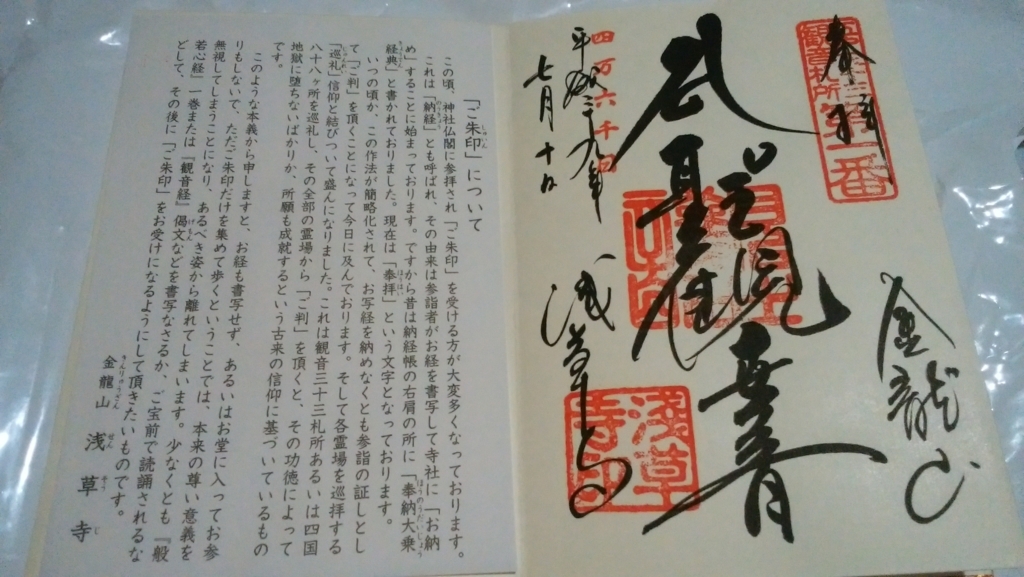 奉拝
観音札所
第一番
金龍山
四万六千日
平成二十九年
七月十日
浅草寺
浅草寺印
「ご朱印」について
この頃、神社仏閣に参拝され「ご朱印」を受ける方が大変多くなっております。
これは「納経」とも呼ばれ、その由来は参詣者がお経を書写して寺社に「お納
め」することに始まっております。ですから昔は納経帳の右肩の所に、「奉納大乗
経典」と書かれておりました。現在は「奉拝」という文字となっております。
いつの頃か、この作法が簡略化されて、お写経を納めなくとも参詣の証しとし
て「ご判」を頂くことになって今日に及んでおります。そして各霊場を巡拝する
「巡礼」信仰と結びついて盛んになりました。これは観音三十三札所あるいは四国
八十八ヶ所を巡礼し、その全部の霊場から「ご判」を頂くと、その功徳によって
地獄に堕ちないばかりか、所願も成就するという古来の信仰に基づいているもの
です。
このような本義から申しますと、お経も書写せず、あるいはお堂に入ってお参
りもしないで、ただご朱印だけを集めて歩くということでは、本来の尊い意義を
無視してしまうことになり、あるべき姿から離れてしまいます。少なくとも『般
若心経』一巻または『観音経』偈文などを書写なさるか、ご宝前で読誦されるな
どして、その後に「ご朱印」をお受けになるようにして頂きたいものです。
金龍山 浅草寺